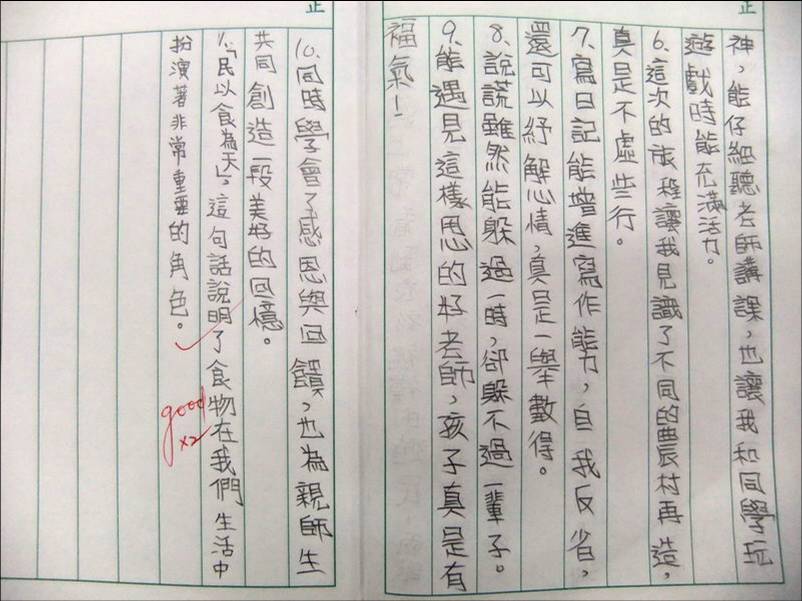 神，能仔細聽老師講課，也讓我和同學玩
遊戲時能充滿活力。
6.這次的旅程讓我見識了不同的農村再造，
真是不虛些行。
7.寫日記能增進寫作能力，自我反省，
還可以紓解心情，真是一舉數得。
8.說謊雖然能躲過一時，卻躲不過一輩子。
9.能遇見這樣恩的好老師，孩子真是有
福氣！
10.同時學會了感恩與回饋，也為親師生
共同創造一段美好的回憶。
1.「民以食為天」，這句話說明了食物在我們生活中
扮演著非常重要的角色。
good
x2